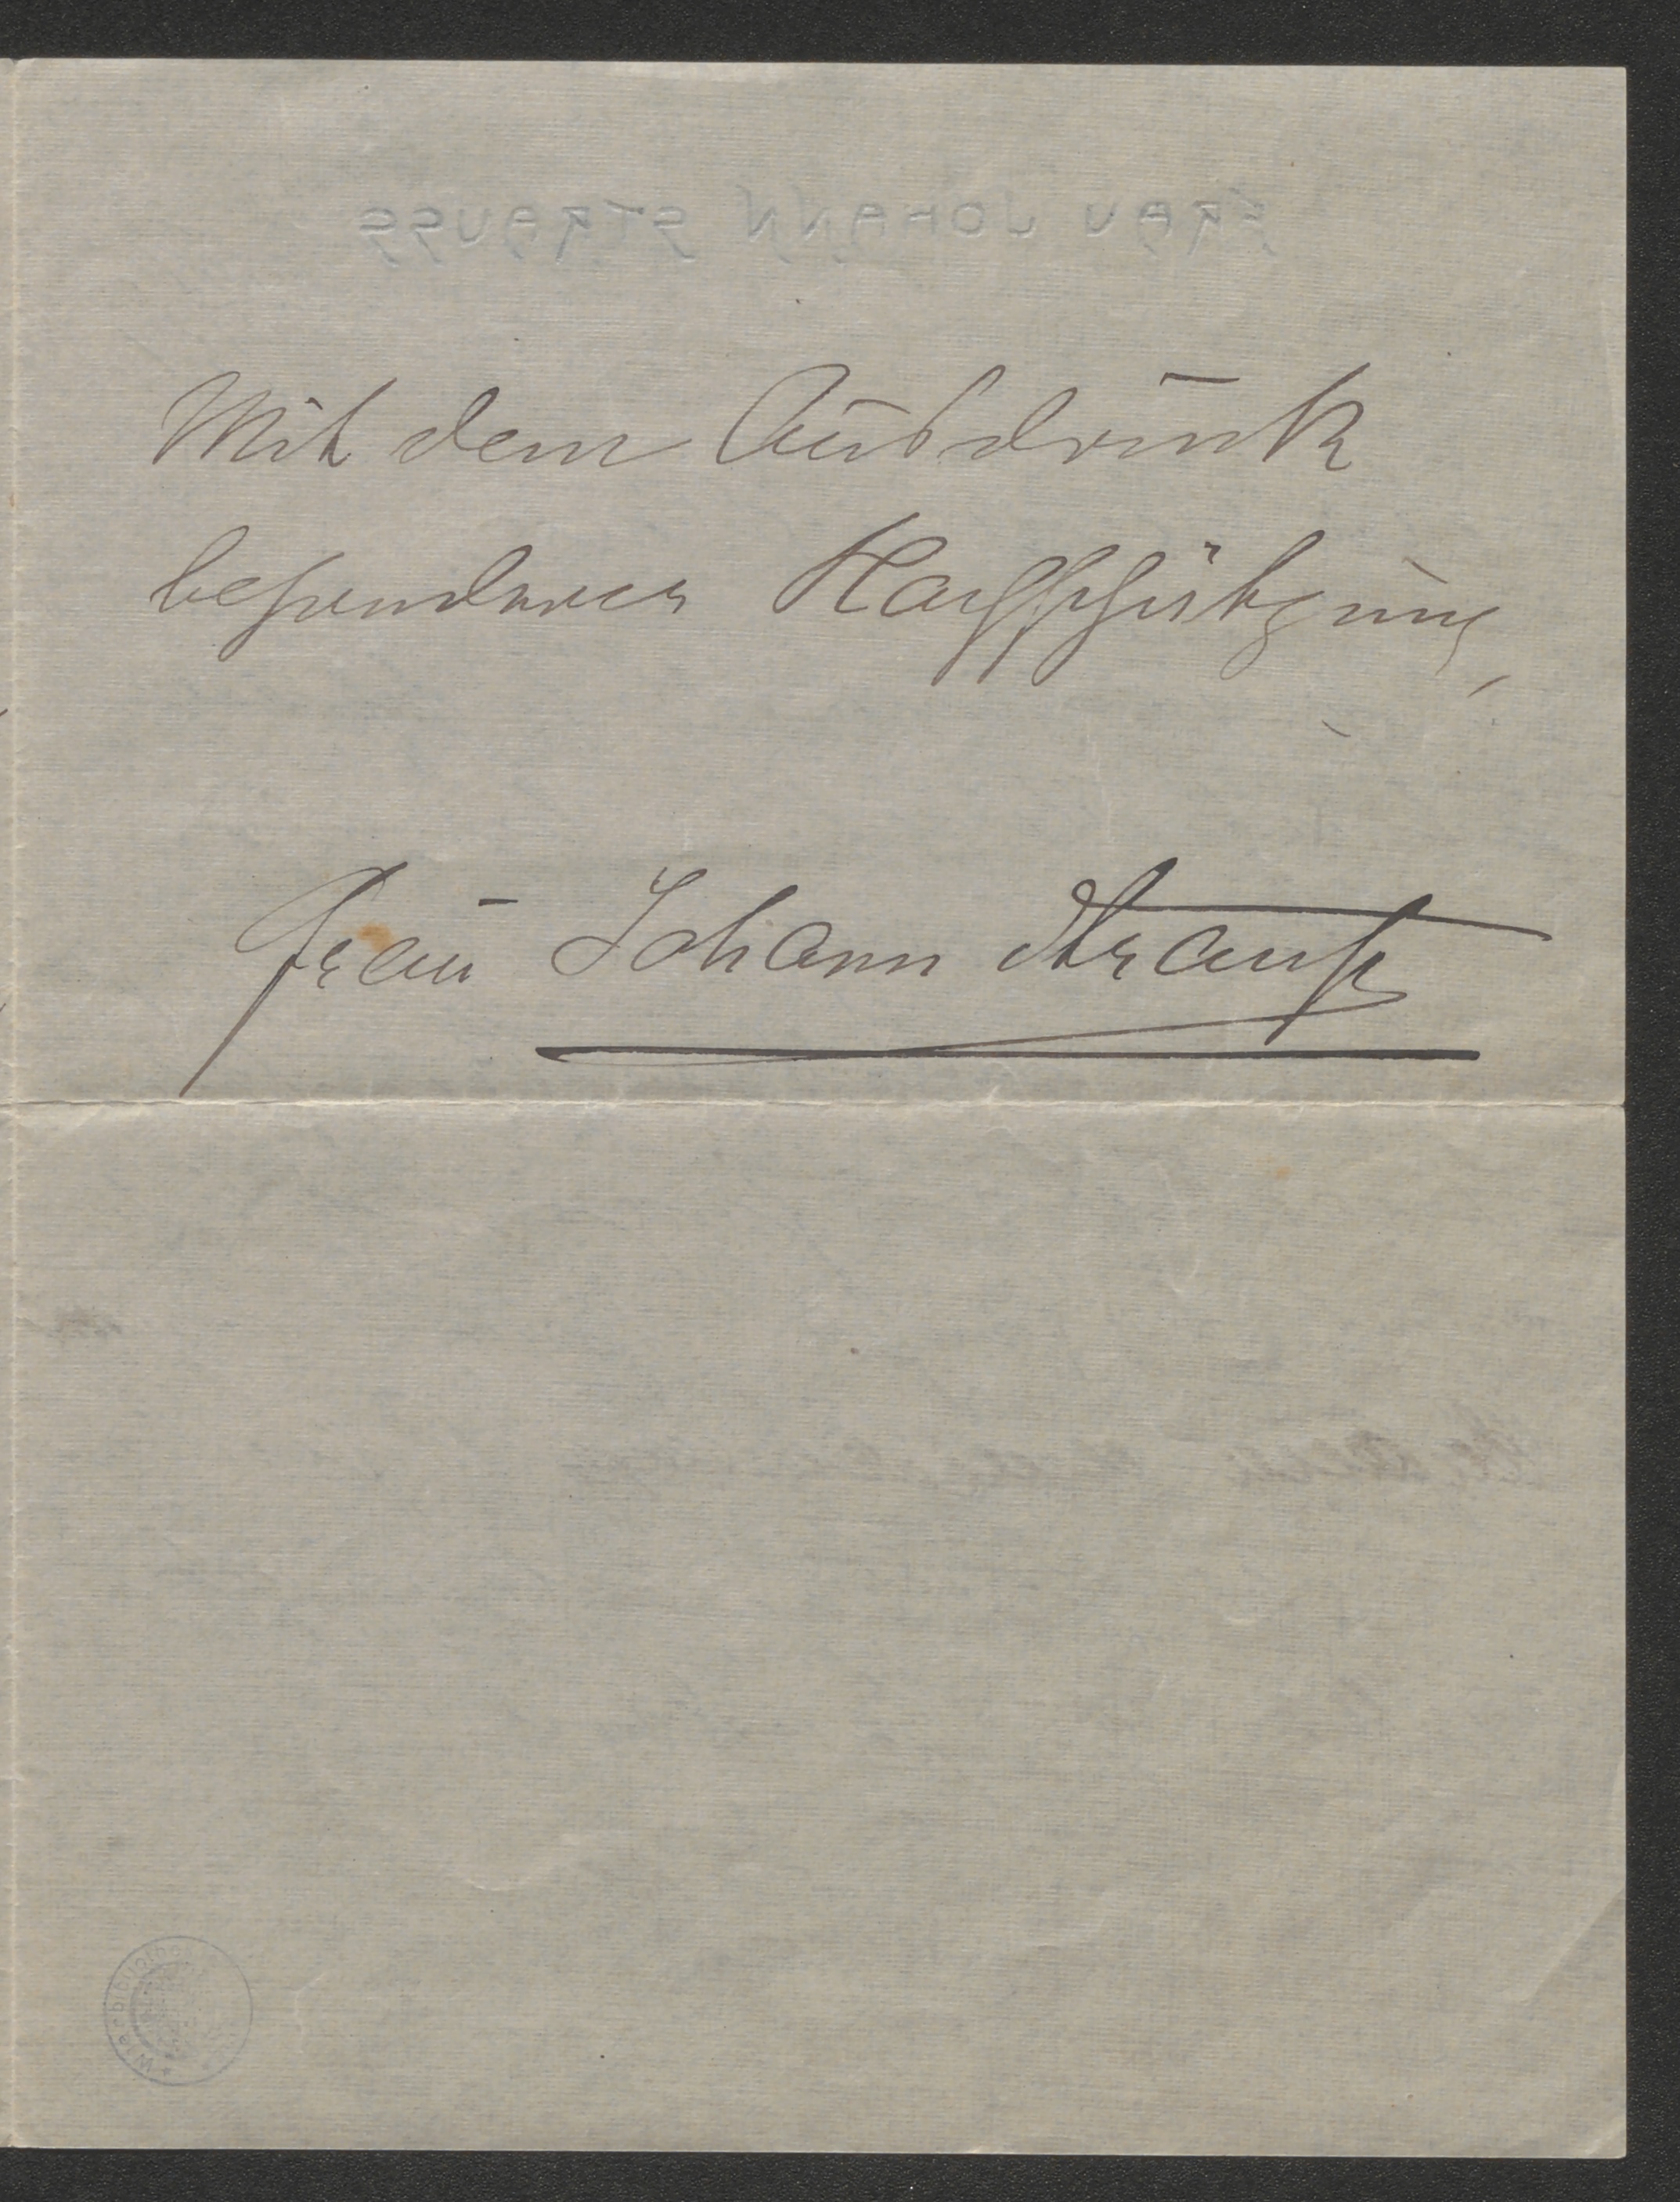 FRAU JOHANN STRAUSS
Mit dem Ausdruck
besonderer Hochschätzung,
Frau Johann Strauß